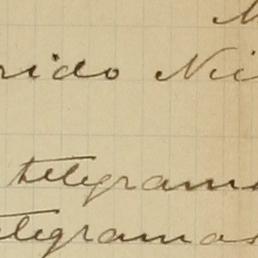 M
rido Ni
telegrama
telegramas